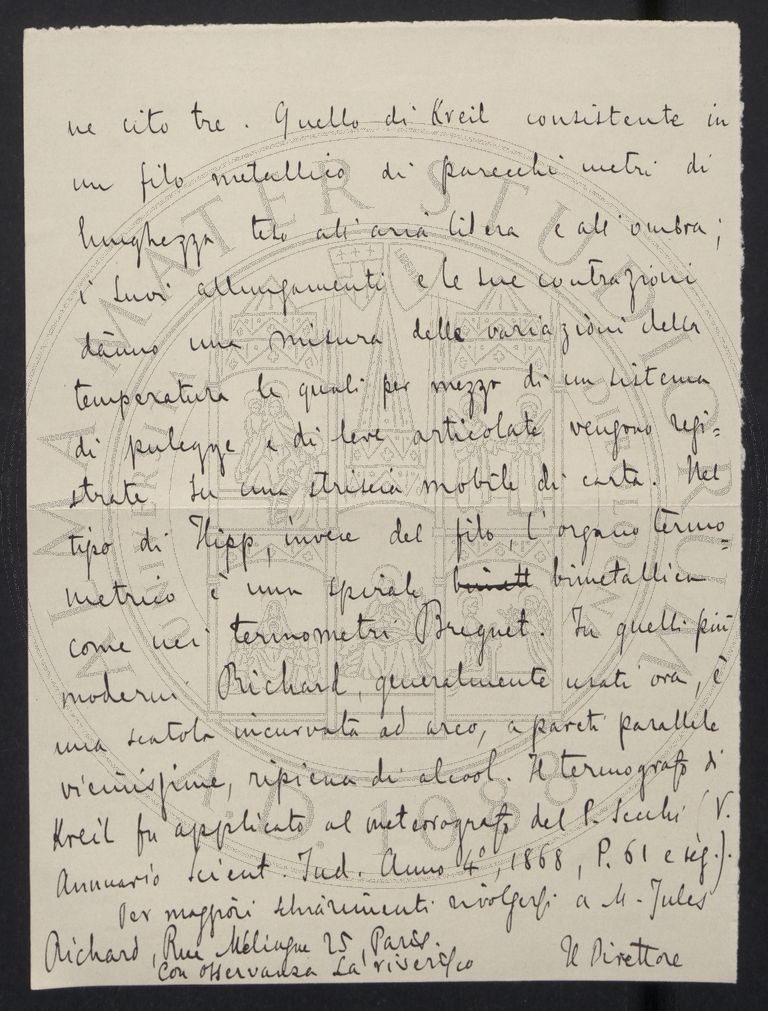 ne cito tre. Quello di Kreil consistente in
un filo metallico di parecchi metri di
lunghezza teso all'aria libera e all'ombra;
i suoi allungamenti e le sue contrazioni
dànno una misura delle variazioni della
temperatura le quali per mezzo di un sistema
di pulegge e di leve articolate vengono regi=
strate su una striscia mobile di carta. Nel
tipo di Hipp, invece del filo, l'organo termo=
metrico è una spirale bimetallica
come nei termometri Breguet. In quelli più
moderni Richard, generalmente usati ora, è
una scatola incurvata ad arco, a pareti parallele
vicinissime, ripiena di alcool. Il termografo di
Kreil fu applicato al meteorografo del P. Secchi (V.
Annuario Scient. Ind. Anno 4°, 1868, P. 61 e seg.).
Per maggiori schiarimenti rivolgersi a M. Jules
Richard, Rue Mélingue 25, Paris.
Con osservanza La riverisco
Il Direttore
ALMA MATER STUDIORUM
A.D. 1088